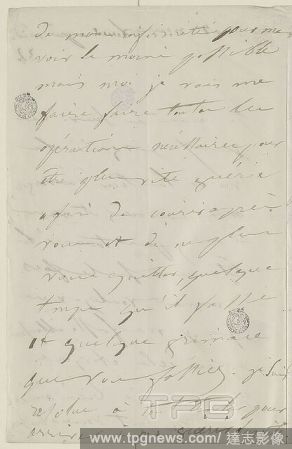 de pour me
voir le moins possible
mais moi je vais me
faire faire toutes les
opérations nécessaires pour
être plus vite guérie
afin de courir après
vous et de ne plus
vous quitter, quelque
temps qu'il fasse
et quelque grimace
que vous fassiez. je suis
résolue à pour
TPG
www.tpgnews.com / 達志影像